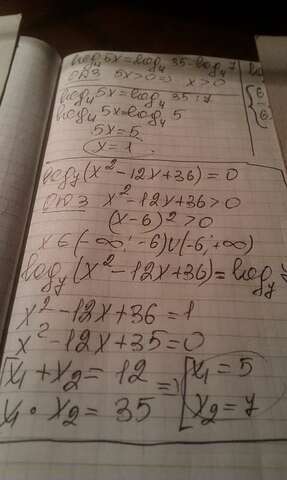 log₄ 5x = log₄ 35 - log₄ 7
ОДЗ 5x > 0 ⇒ x > 0
log₄ 5x = log₄ 35 : 7
log₄ 5x = log₄ 5
5x = 5
x = 1
(x² - 12x + 36) = 0
ОДЗ x² - 12x + 36 > 0
(x - 6)² > 0
x ∈ (-∞; -6) ∪ (-6; +∞)
(x² - 12x + 36) = log
x² - 12x + 36 = 1
x² - 12x + 35 = 0
x₁ + x₂ = 12 ⇒ x₁ = 5
x₁ · x₂ = 35 x₂ = 7